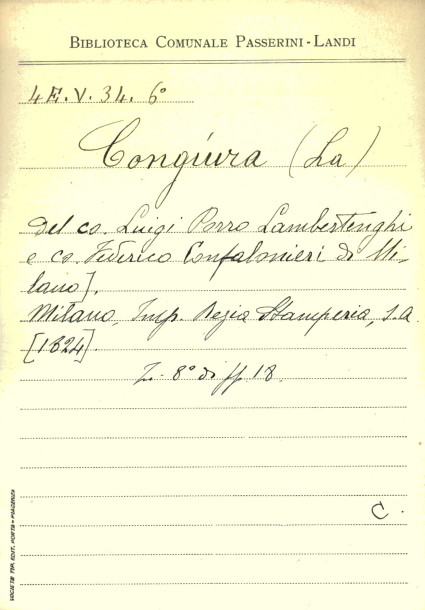 BIBLIOTECA COMUNALE PASSERINI-LANDI
4E.V.34.6°
Congiura (La)
del co. Luigi Porro Lambertenghi
e co. Federico Confalonieri di Mi-
lano].
Milano, Imp. Regia Stamperia, s.a.
[1824].
8° di ff 18.
C.
SOCIETÀ TIP. EDIT. PORTA - PIACENZA